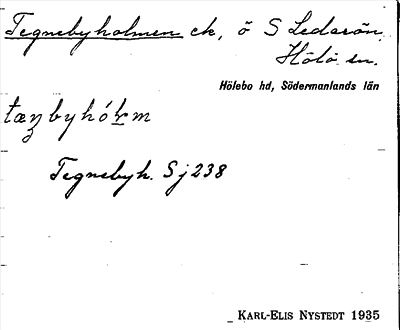 Tegnebyholmen ek, ö S Ledarön,
Hölö sn.
Hölebo hd, Södermanlands län
tæŋbyhólm
Tegnebyh. Sj 238
KARL-ELIS NYSTEDT 1935